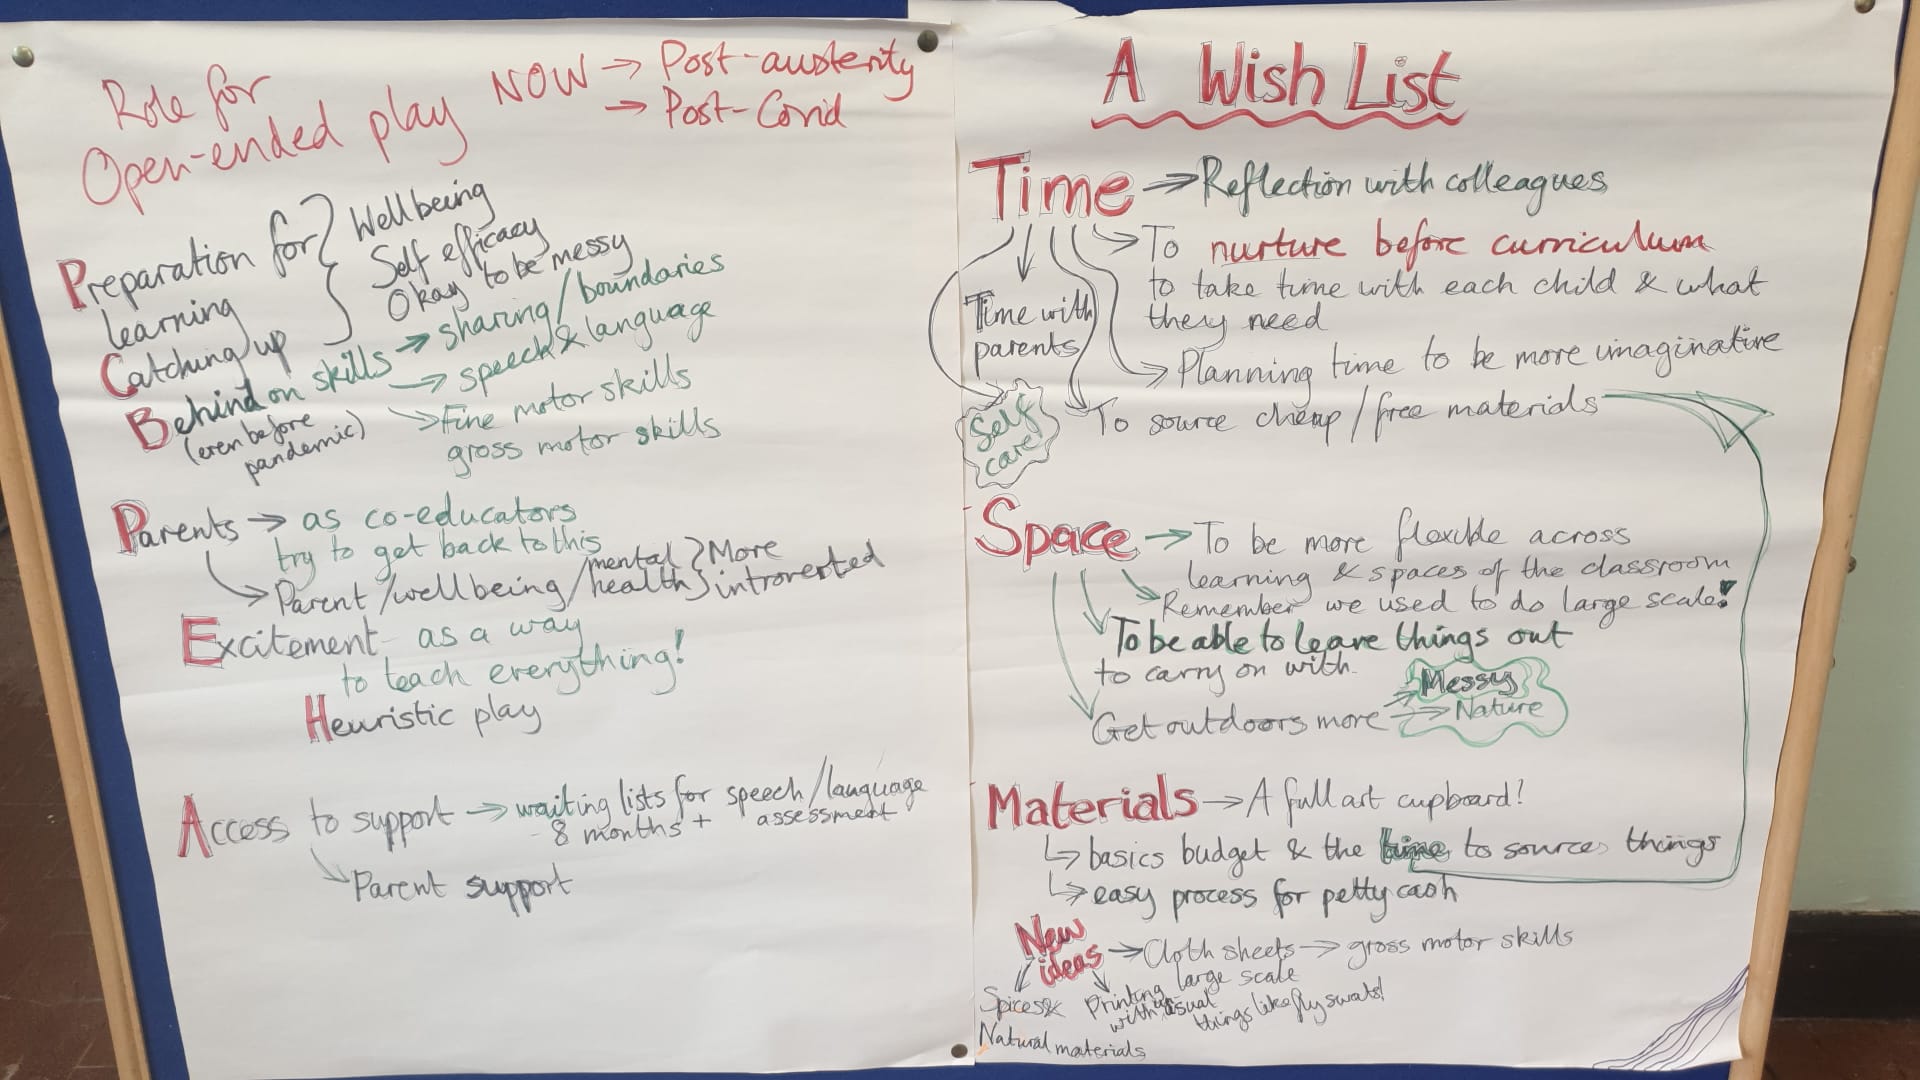 Role for
Open-ended play NOW → Post-austerity
→ Post-Covid
Preparation for } Wellbeing
learning } Self efficacy
Okay to be messy
Catching up
Behind on skills → sharing/boundaries
(even before pandemic) → speech & language
→ Fine motor skills
gross motor skills
Parents → as co-educators
try to get back to this
→ Parent/wellbeing/mental health } More introverted
Excitement - as a way
to teach everything!
Heuristic play
Access to support → waiting lists for speech/language
- 8 months + assessment
→ Parent support
A Wish List
Time → Reflection with colleagues
→ To nurture before curriculum
to take time with each child & what
they need
→ Time with
parents
→ Planning time to be more imaginative
→ To source cheap/free materials
Self
care!
Space → To be more flexible across
learning & spaces of the classroom
→ Remember we used to do large scale!
→ To be able to leave things out
to carry on with.
→ Get outdoors more → Messy
→ Nature
Materials → A full art cupboard!
↳ basics budget & the time to source things
↳ easy process for petty cash
New
ideas → Cloth sheets → gross motor skills
large scale
Spices &
Natural materials
Printing
with unusual
things like fly swats!